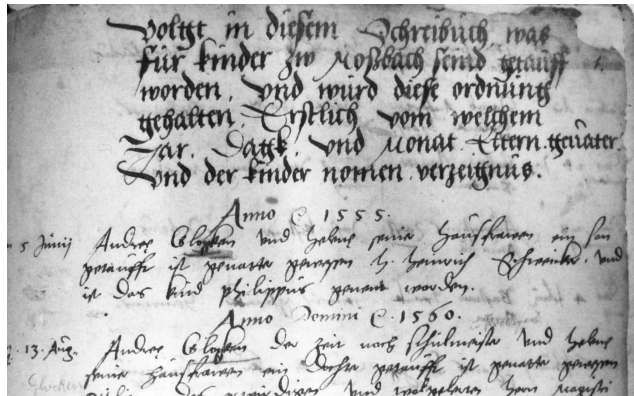 Volgt in diesem Schreibuch was
für kinder zw Moßbach seind getaufft
worden. Vnd würd diese ordnung
gehalten. Erstlich vom welchem
Jar. Dagk. vnd Monat. Eltern. gevater.
Vnd der kinder nomen verzeignüs.
Anno C 1555.
5 Junij Andree Glocken vnd helene seine haüsfrawen ein son
getaüfft ist gevatter gewesen h. heinrich Schwencke. vnd
ist das kind philippus genent worden.
Anno Domini C. 1560.
13. Aug. Andree Glocken der zeit noch schülmeister vnd helene
seine haüsfrawen ein dochter getaüfft ist gevatter gewesen
Glocken des erwirdigen vnd wolgelerten hern Magistri